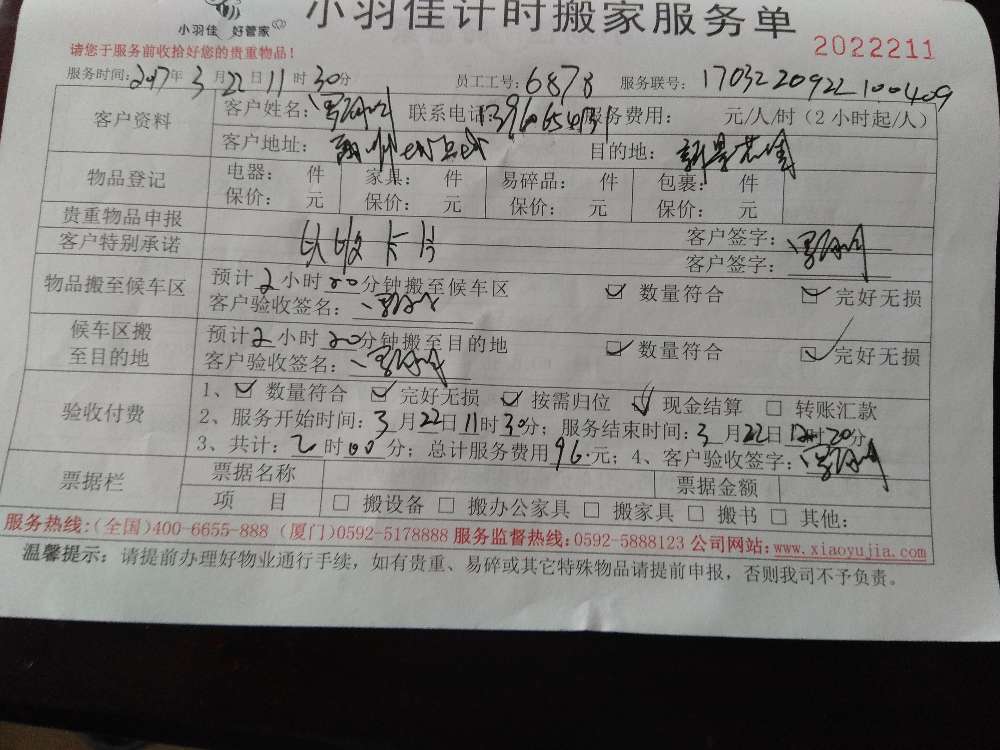 小羽佳 好管家
小羽佳计时搬家服务单
请您于服务前收拾好您的贵重物品！
2022211
服务时间：2017年3月22日11时30分 员工工号：6878 服务联号：17032209221000409
客户资料
客户姓名： 联系电话： 服务费用： 元/人/时（2小时起/人）
客户地址： 目的地：
物品登记
电器： 件 家具： 件 易碎品： 件 包裹： 件
保价： 元 保价： 元 保价： 元 保价： 元
贵重物品申报 客户签字：
客户特别承诺 客户签字：
物品搬至候车区
预计2小时20分钟搬至候车区 数量符合 完好无损
客户验收签名：
候车区搬至目的地
预计2小时20分钟搬至目的地 数量符合 完好无损
客户验收签名：
验收付费
1、数量符合 完好无损 按需归位 现金结算 转账汇款
2、服务开始时间：3月22日11时30分；服务结束时间：3月22日 时20分
3、共计：2时00分；总计服务费用96.元；4、客户验收签字：
票据栏
票据名称 票据金额
项 目 □ 搬设备 □ 搬办公家具 □ 搬家具 □ 搬书 □ 其他：
服务热线：（全国）400-6655-888 （厦门）0592-5178888 服务监督热线：0592-5888123 公司网站：www.xiaoyujia.com
温馨提示：请提前办理好物业通行手续，如有贵重、易碎或其它特殊物品请提前申报，否则我司不予负责。